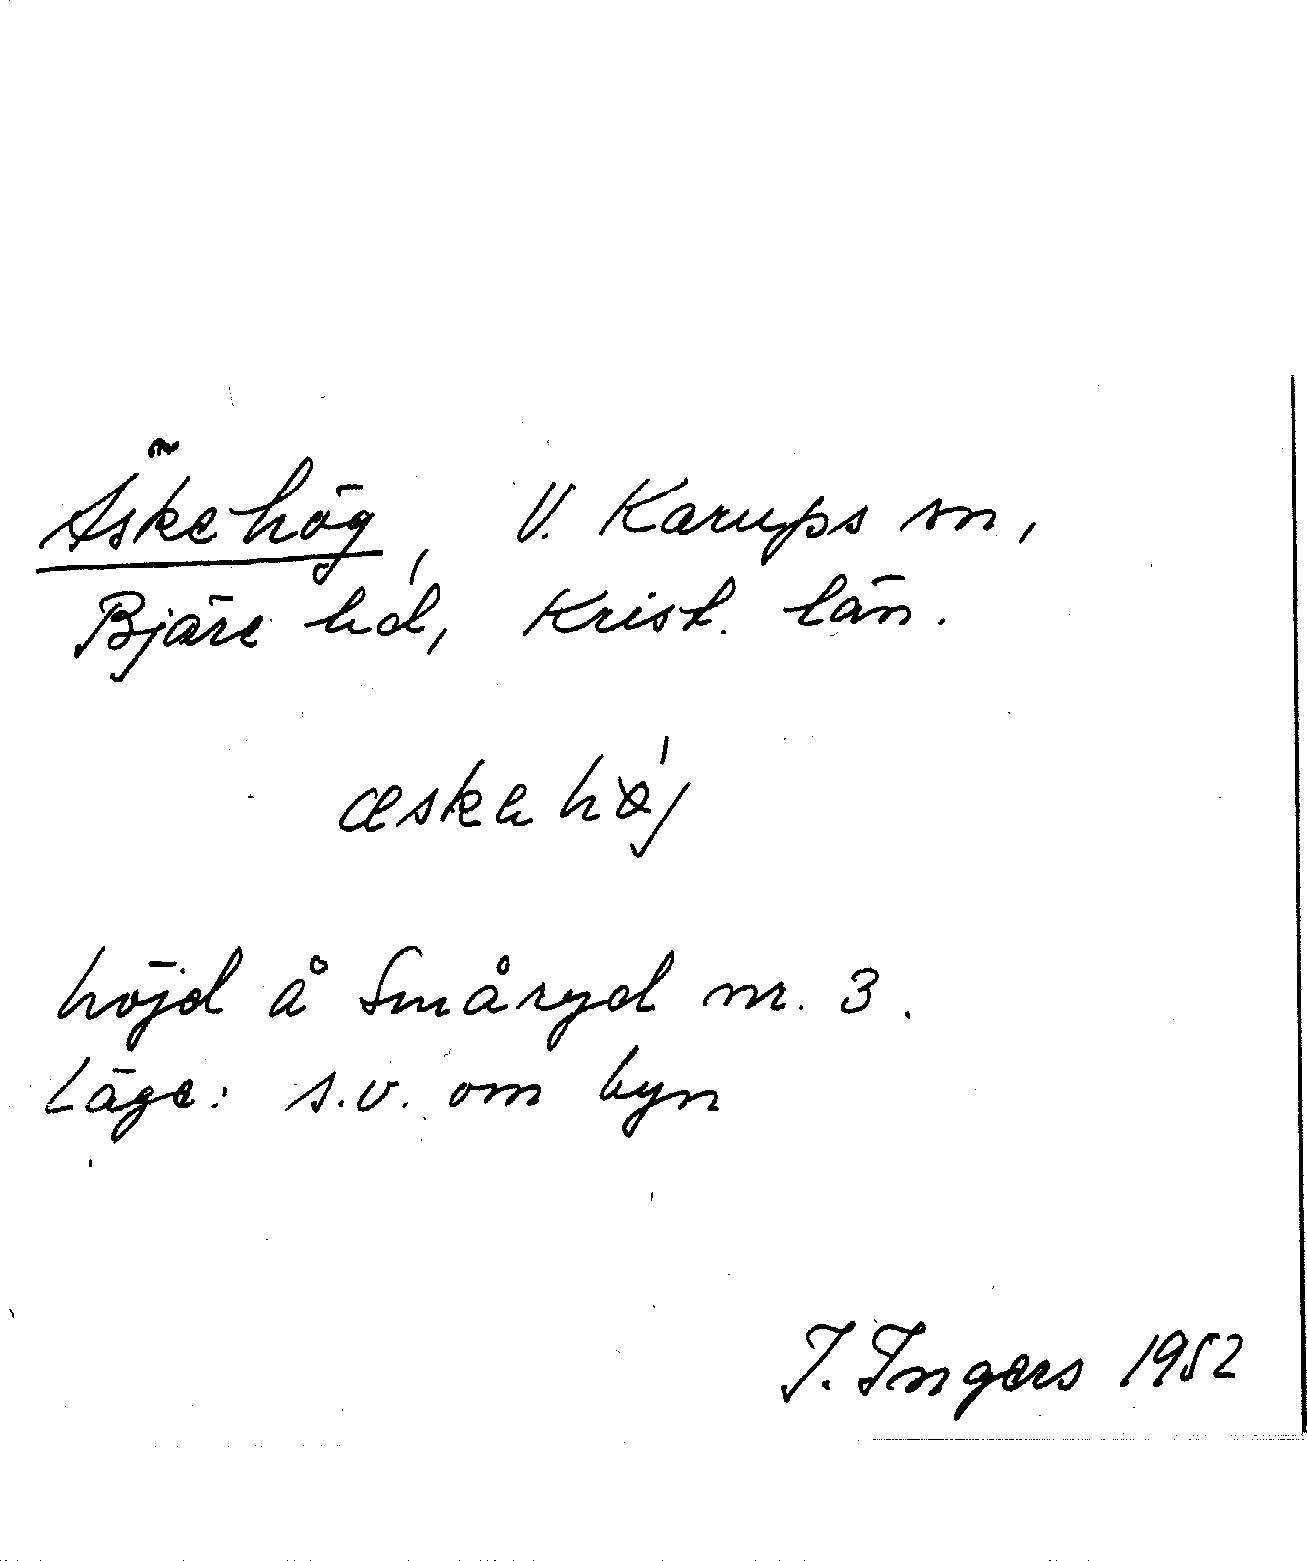 Äskehög, V. Karups sn,
Bjäre hd, Krist. län.
æskahø̀́j
höjd å Småryd nr. 3.
Läge: s.v. om byn
I. Ingers 1952